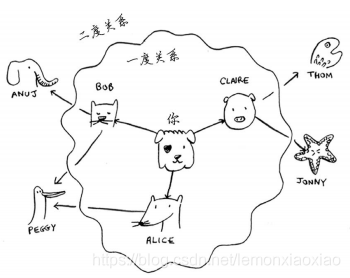 二度关系
一度关系
ANUJ
BOB
CLAIRE
THOM
你
JONNY
PEGGY
ALICE
https://blog.csdn.net/lemonxiaoxiao